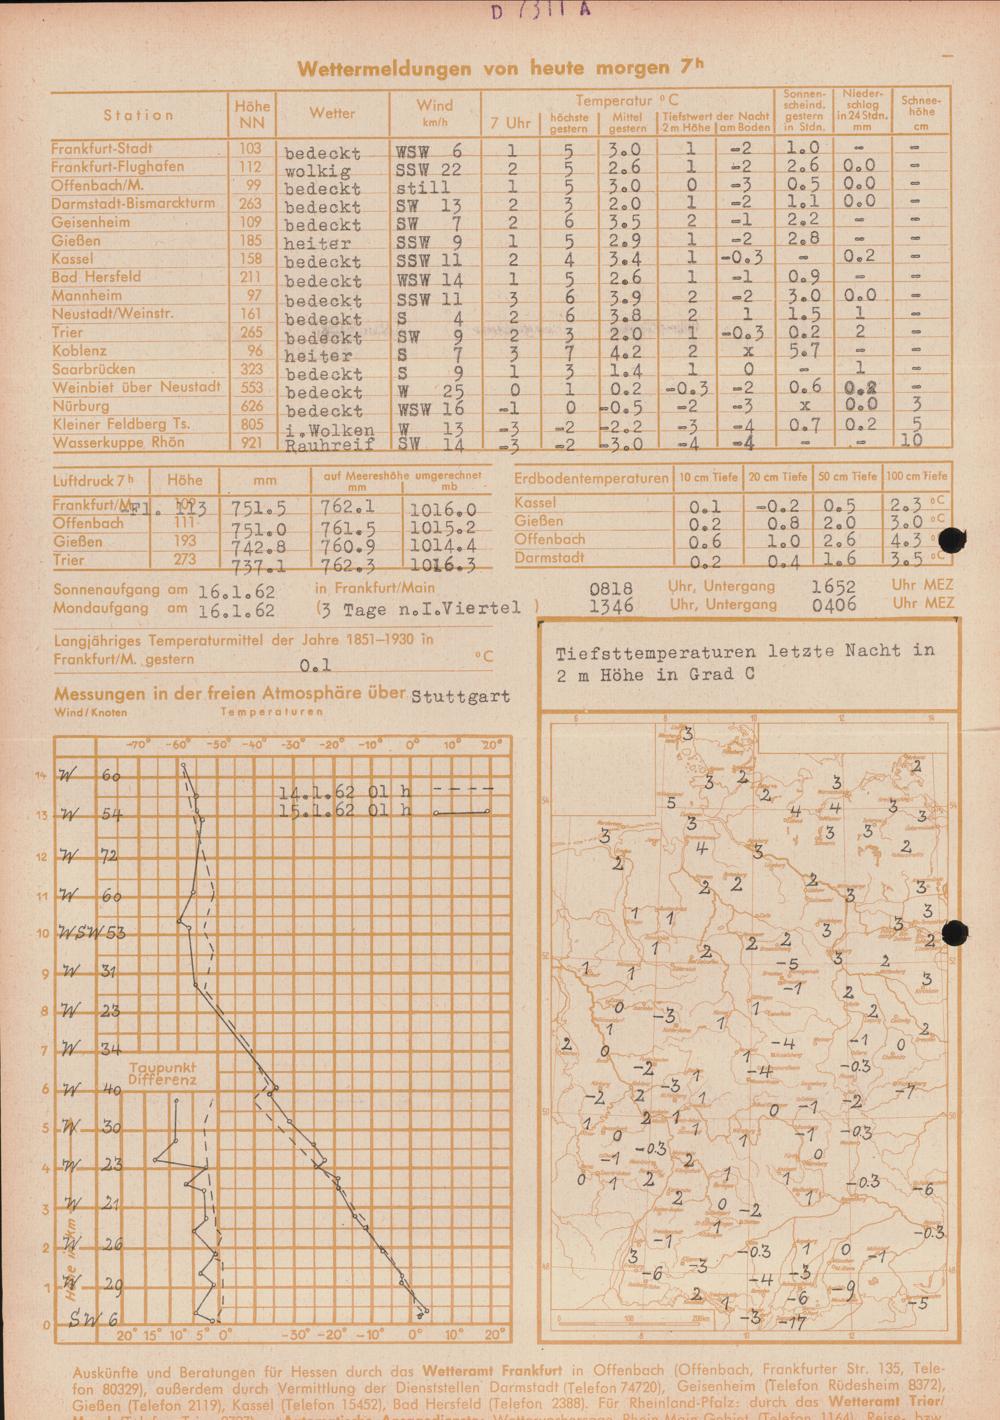 D 7311 A
Wettermeldungen von heute morgen 7h
Station Höhe NN Wetter Wind km/h Temperatur °C Sonnenscheind. gestern in Stdn. Niederschlag in 24 Stdn. mm Schneehöhe cm
7 Uhr höchste gestern Mittel gestern Tiefstwert der Nacht 2 m Höhe am Boden
Frankfurt-Stadt 103 bedeckt WSW 6 1 5 3.0 1 -2 1.0 - -
Frankfurt-Flughafen 112 wolkig SSW 22 2 5 2.6 1 -2 2.6 0.0 -
Offenbach/M. 99 bedeckt still 1 5 3.0 0 -3 0.5 0.0 -
Darmstadt-Bismarckturm 263 bedeckt SW 13 2 3 2.0 1 -2 1.1 0.0 -
Geisenheim 109 bedeckt SW 7 2 6 3.5 2 -1 2.2 - -
Gießen 185 heiter SSW 9 1 5 2.9 1 -2 2.8 - -
Kassel 158 bedeckt SSW 11 2 4 3.4 1 -0.3 - 0.2 -
Bad Hersfeld 211 bedeckt WSW 14 1 5 2.6 1 -1 0.9 - -
Mannheim 97 bedeckt SSW 11 3 6 3.9 2 -2 3.0 0.0 -
Neustadt/Weinstr. 161 bedeckt S 4 2 6 3.8 2 1 1.5 1 -
Trier 265 bedeckt SW 9 2 3 2.0 1 -0.3 0.2 2 -
Koblenz 96 heiter S 7 3 7 4.2 2 x 5.7 - -
Saarbrücken 323 bedeckt S 9 1 3 1.4 1 0 - 1 -
Weinbiet über Neustadt 553 bedeckt W 25 0 1 0.2 -0.3 -2 0.6 0.2 -
Nürburg 626 bedeckt WSW 16 -1 0 -0.5 -2 -3 x 0.0 3
Kleiner Feldberg Ts. 805 i.Wolken W 13 -3 -2 -2.2 -3 -4 0.7 0.2 5
Wasserkuppe Rhön 921 Rauhreif SW 14 -3 -2 -3.0 -4 -4 - - 10
Luftdruck 7h Höhe mm auf Meereshöhe umgerechnet mm mb
Frankfurt/M.-Fl. 113 751.5 762.1 1016.0
Offenbach 111 751.0 761.5 1015.2
Gießen 193 742.8 760.9 1014.4
Trier 273 737.1 762.3 1016.3
Erdbodentemperaturen 10 cm Tiefe 20 cm Tiefe 50 cm Tiefe 100 cm Tiefe
Kassel 0.1 -0.2 0.5 2.3 °C
Gießen 0.2 0.8 2.0 3.0 °C
Offenbach 0.6 1.0 2.6 4.3 °C
Darmstadt 0.2 0.4 1.6 3.5 °C
Sonnenaufgang am 16.1.62 in Frankfurt/Main 0818 Uhr, Untergang 1652 Uhr MEZ
Mondaufgang am 16.1.62 (3 Tage n.I.Viertel ) 1346 Uhr, Untergang 0406 Uhr MEZ
Langjähriges Temperaturmittel der Jahre 1851–1930 in
Frankfurt/M. gestern 0.1 °C
Messungen in der freien Atmosphäre über Stuttgart
Wind/Knoten Temperaturen
-70° -60° -50° -40° -30° -20° -10° 0° 10° 20°
14 W 60
14.1.62 01 h
15.1.62 01 h
13 W 54
12 W 72
11 W 60
10 WSW 53
9 W 31
8 W 23
7 W 34
Taupunkt
Differenz
6 W 40
5 W 30
4 W 23
3 W 21
2 W 26
1 W 29
0 SW 6
Höhe in km
20° 15° 10° 5° 0° -30° -20° -10° 0° 10° 20°
Tiefsttemperaturen letzte Nacht in
2 m Höhe in Grad C
6 8 10 12 14
3
3 2 2 3 2
5 4 4 3 3
3 3 4 3 3 3 2
2 2 2 2 3 3
1 1 3 3 3
1 2 2 2 3 2
1 1 -5 3 2 3
-1 2
0 -3 1 1 1 2 2
2 0 -4 -1 0
-2 -3 1 1 -4 -0.3 -7
-2 2 1 0 -1 -2
1 0 2 1 1 1 -1 -0.3
-1 -0.3 2 0
0 1 2 1 1 1 -0.3 -6
2 0 -2
1 -0.3
-1 -0.3 1 0 -1
3 -6 -3 -4 -3 -9
2 1 -3 -6 -17 -5
0 100 200km
Auskünfte und Beratungen für Hessen durch das Wetteramt Frankfurt in Offenbach (Offenbach, Frankfurter Str. 135, Tele-
fon 80329), außerdem durch Vermittlung der Dienststellen Darmstadt (Telefon 74720), Geisenheim (Telefon Rüdesheim 8372),
Gießen (Telefon 2119), Kassel (Telefon 15452), Bad Hersfeld (Telefon 2388). Für Rheinland-Pfalz: durch das Wetteramt Trier/